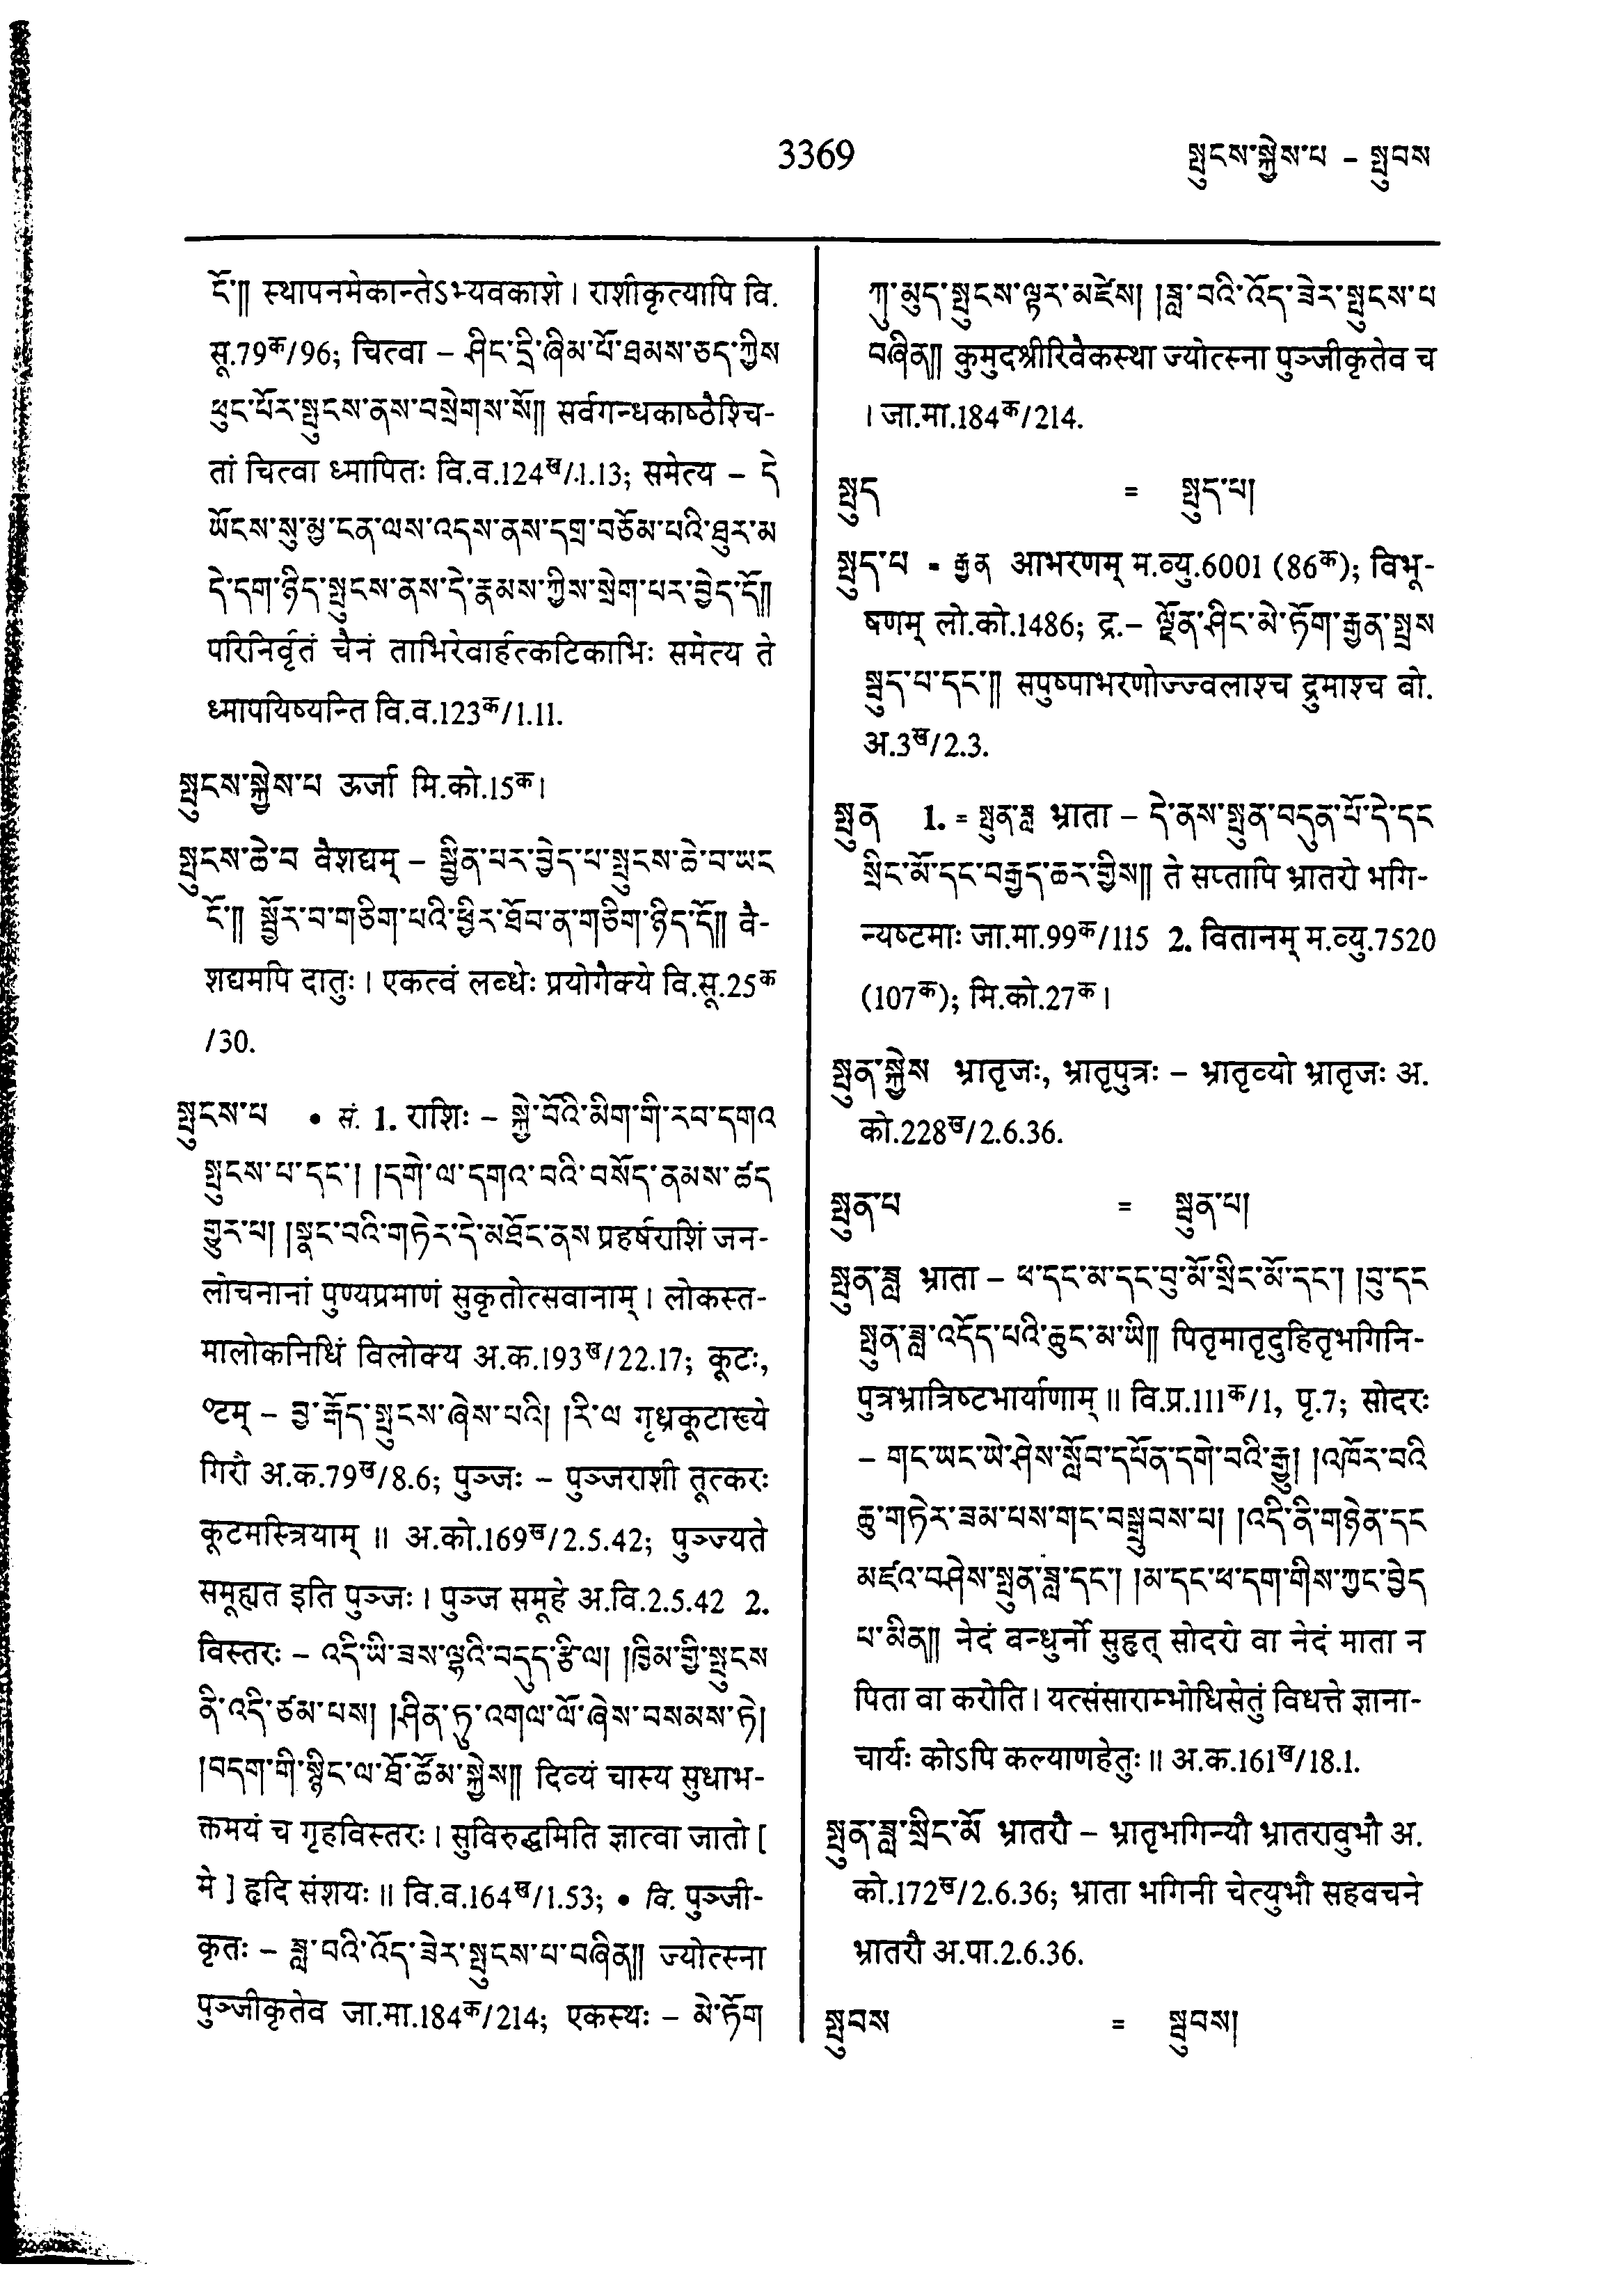 3369
སྤུངས་སྐྱེས་པ – སྤུབས
ངོ་།། स्थापनमेकान्तेऽभ्यवकाशे। राशीकृत्यापि वि.
सू.79क/96; चित्वा – ཤིང་དྲི་ཞིམ་པོ་ཐམས་ཅད་ཀྱིས
ཕུང་པོར་སྤུངས་ནས་བསྲེགས་སོ།། सर्वगन्धकाष्ठैश्चि-
तां चित्वा ध्मापितः वि.व.124ख/1.13; समेत्य – དེ
ཡོངས་སུ་མྱ་ངན་ལས་འདས་ནས་དགྲ་བཅོམ་པའི་ཐུར་མ
དེ་དག་ཉིད་སྤུངས་ནས་དེ་རྣམས་ཀྱིས་སྲེག་པར་བྱེད་དོ།།
परिनिर्वृतं चैनं ताभिरेवार्हत्कटिकाभिः समेत्य ते
ध्मापयिष्यन्ति वि.व.123क/1.11.
སྤུངས་སྐྱེས་པ ऊर्जा मि.को.15क।
སྤུངས་ཆེ་བ वैशद्यम् – སྦྱིན་པར་བྱེད་པ་སྤུངས་ཆེ་བ་ཡང
ངོ་།། སྦྱོར་བ་གཅིག་པའི་ཕྱིར་ཐོབ་ན་གཅིག་ཉིད་དོ།། वै-
शद्यमपि दातुः। एकत्वं लब्धेः प्रयोगैक्ये वि.सू.25क
/30.
སྤུངས་པ • सं. 1. राशिः – སྐྱེ་བོའི་མིག་གི་རབ་དགའ
སྤུངས་པ་དང་། །དགེ་ལ་དགའ་བའི་བསོད་ནམས་ཚད
གྱུར་པ། །སྣང་བའི་གཏེར་དེ་མཐོང་ནས प्रहर्षराशिं जन-
लोचनानां पुण्यप्रमाणं सुकृतोत्सवानाम्। लोकस्त-
मालोकनिधिं विलोक्य अ.क.193ख/22.17; कूटः,
०टम् – བྱ་རྒོད་སྤུངས་ཞེས་པའི། །རི་ལ गृध्रकूटाख्ये
गिरौ अ.क.79ख/8.6; पुञ्जः – पुञ्जराशी तूत्करः
कूटमस्त्रियाम्॥ अ.को.169ख/2.5.42; पुञ्ज्यते
समूह्यत इति पुञ्जः। पुञ्ज समूहे अ.वि.2.5.42 2.
विस्तरः – འདི་ཡི་ཟས་ལྷའི་བདུད་རྩི་ལ། །ཁྱིམ་གྱི་སྤུངས
ནི་འདི་ཙམ་པས། །ཤིན་ཏུ་འགལ་ལོ་ཞེས་བསམས་ཏེ།
།བདག་གི་སྙིང་ལ་ཐེ་ཚོམ་སྐྱེས།། दिव्यं चास्य सुधाभ-
क्तमयं च गृहविस्तरः। सुविरुद्धमिति ज्ञात्वा जातो [
मे ] हृदि संशयः॥ वि.व.164ख/1.53; • वि. पुञ्जी-
कृतः – ཟླ་བའི་འོད་ཟེར་སྤུངས་པ་བཞིན།། ज्योत्स्ना
पुञ्जीकृतेव जा.मा.184क/214; एकस्थः – མེ་ཏོག
ཀུ་མུད་སྤུངས་ལྟར་མཛེས། །ཟླ་བའི་འོད་ཟེར་སྤུངས་པ
བཞིན།། कुमुदश्रीरिवैकस्था ज्योत्स्ना पुञ्जीकृतेव च
। जा.मा.184क/214.
སྤུད = སྤུད་པ།
སྤུད་པ = རྒྱན आभरणम् म.व्यु.6001 (86क); विभू-
षणम् लो.को.1486; द्र.– ལྗོན་ཤིང་མེ་ཏོག་རྒྱན་སྤྲས
སྤུད་པ་དང་།། सपुष्पाभरणोज्ज्वलाश्च द्रुमाश्च बो.
अ.3ख/2.3.
སྤུན 1. = སྤུན་ཟླ भ्राता – དེ་ནས་སྤུན་བདུན་པོ་དེ་དང
སྲིང་མོ་དང་བརྒྱད་ཆར་གྱིས།། ते सप्तापि भ्रातरो भगि-
न्यष्टमाः जा.मा.99क/115 2. वितानम् म.व्यु.7520
(107क); मि.को.27क।
སྤུན་སྐྱེས भ्रातृजः, भ्रातृपुत्रः – भ्रातृव्यो भ्रातृजः अ.
को.228ख/2.6.36.
སྤུན་པ = སྦུན་པ།
སྤུན་ཟླ भ्राता – ཕ་དང་མ་དང་བུ་མོ་སྲིང་མོ་དང་། །བུ་དང
སྤུན་ཟླ་འདོད་པའི་ཆུང་མ་ཡི།། पितृमातृदुहितृभगिनि-
पुत्रभ्रात्रिष्टभार्याणाम्॥ वि.प्र.111क/1, पृ.7; सोदरः
– གང་ཡང་ཡེ་ཤེས་སློབ་དཔོན་དགེ་བའི་རྒྱུ། །འཁོར་བའི
ཆུ་གཏེར་ཟམ་པས་གང་བསྒྲུབས་པ། །འདི་ནི་གཉེན་དང
མཛའ་བཤེས་སྤུན་ཟླ་དང་། །མ་དང་ཕ་དག་གིས་ཀྱང་བྱེད
པ་མིན།། नेदं बन्धुर्नो सुहृत् सोदरो वा नेदं माता न
पिता वा करोति। यत्संसाराम्भोधिसेतुं विधत्ते ज्ञाना-
चार्यः कोऽपि कल्याणहेतुः॥ अ.क.161ख/18.1.
སྤུན་ཟླ་སྲིང་མོ भ्रातरौ – भ्रातृभगिन्यौ भ्रातरावुभौ अ.
को.172ख/2.6.36; भ्राता भगिनी चेत्युभौ सहवचने
भ्रातरौ अ.पा.2.6.36.
སྤུབས = སྦུབས།